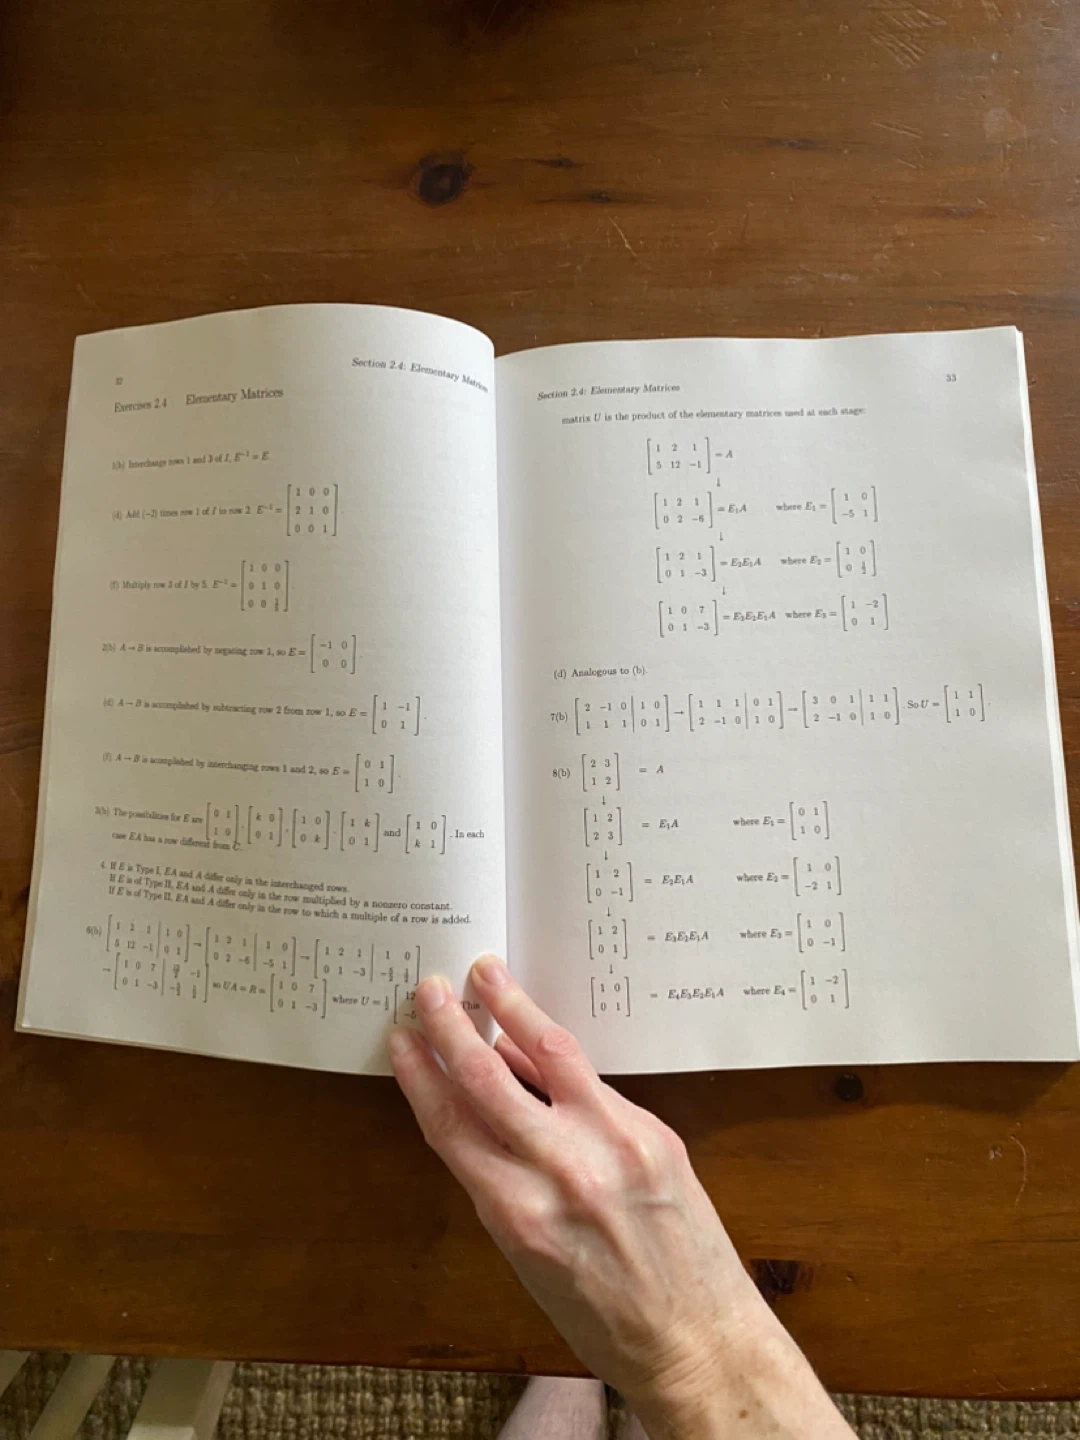 32
Section 2.4: Elementary Matrices
Exercises 2.4 Elementary Matrices
1(b) Interchange rows 1 and 3 of I, E⁻¹ = E.
(d) Add (−2) times row 1 of I to row 2. E⁻¹ = [1 0 0; 2 1 0; 0 0 1].
(f) Multiply row 3 of I by 5. E⁻¹ = [1 0 0; 0 1 0; 0 0 1/5].
2(b) A → B is accomplished by negating row 1, so E = [−1 0; 0 0].
(d) A → B is accomplished by subtracting row 2 from row 1, so E = [1 −1; 0 1].
(f) A → B is acomplished by interchanging rows 1 and 2, so E = [0 1; 1 0].
3(b) The possibilities for E are [0 1; 1 0], [k 0; 0 1], [1 0; 0 k], [1 k; 0 1] and [1 0; k 1]. In each
case EA has a row different from C.
4. If E is Type I, EA and A differ only in the interchanged rows.
If E is of Type II, EA and A differ only in the row multiplied by a nonzero constant.
If E is of Type II, EA and A differ only in the row to which a multiple of a row is added.
6(b) [1 2 1 | 1 0; 5 12 −1 | 0 1] → [1 2 1 | 1 0; 0 2 −6 | −5 1] → [1 2 1 | 1 0; 0 1 −3 | −5/2 1/2]
→ [1 0 7 | −1; 0 1 −3 | −5/2 1/2] so UA = R = [1 0 7; 0 1 −3] where U = 1/2 [12; −5 This
Section 2.4: Elementary Matrices 33
matrix U is the product of the elementary matrices used at each stage:
[1 2 1; 5 12 −1] = A
↓
[1 2 1; 0 2 −6] = E₁A where E₁ = [1 0; −5 1]
↓
[1 2 1; 0 1 −3] = E₂E₁A where E₂ = [1 0; 0 1/2]
↓
[1 0 7; 0 1 −3] = E₃E₂E₁A where E₃ = [1 −2; 0 1]
(d) Analogous to (b).
7(b) [2 −1 0 | 1 0; 1 1 1 | 0 1] → [1 1 1 | 0 1; 2 −1 0 | 1 0] → [3 0 1 | 1 1; 2 −1 0 | 1 0]. So U = [1 1; 1 0].
8(b) [2 3; 1 2] = A
↓
[1 2; 2 3] = E₁A where E₁ = [0 1; 1 0]
↓
[1 2; 0 −1] = E₂E₁A where E₂ = [1 0; −2 1]
↓
[1 2; 0 1] = E₃E₂E₁A where E₃ = [1 0; 0 −1]
↓
[1 0; 0 1] = E₄E₃E₂E₁A where E₄ = [1 −2; 0 1]